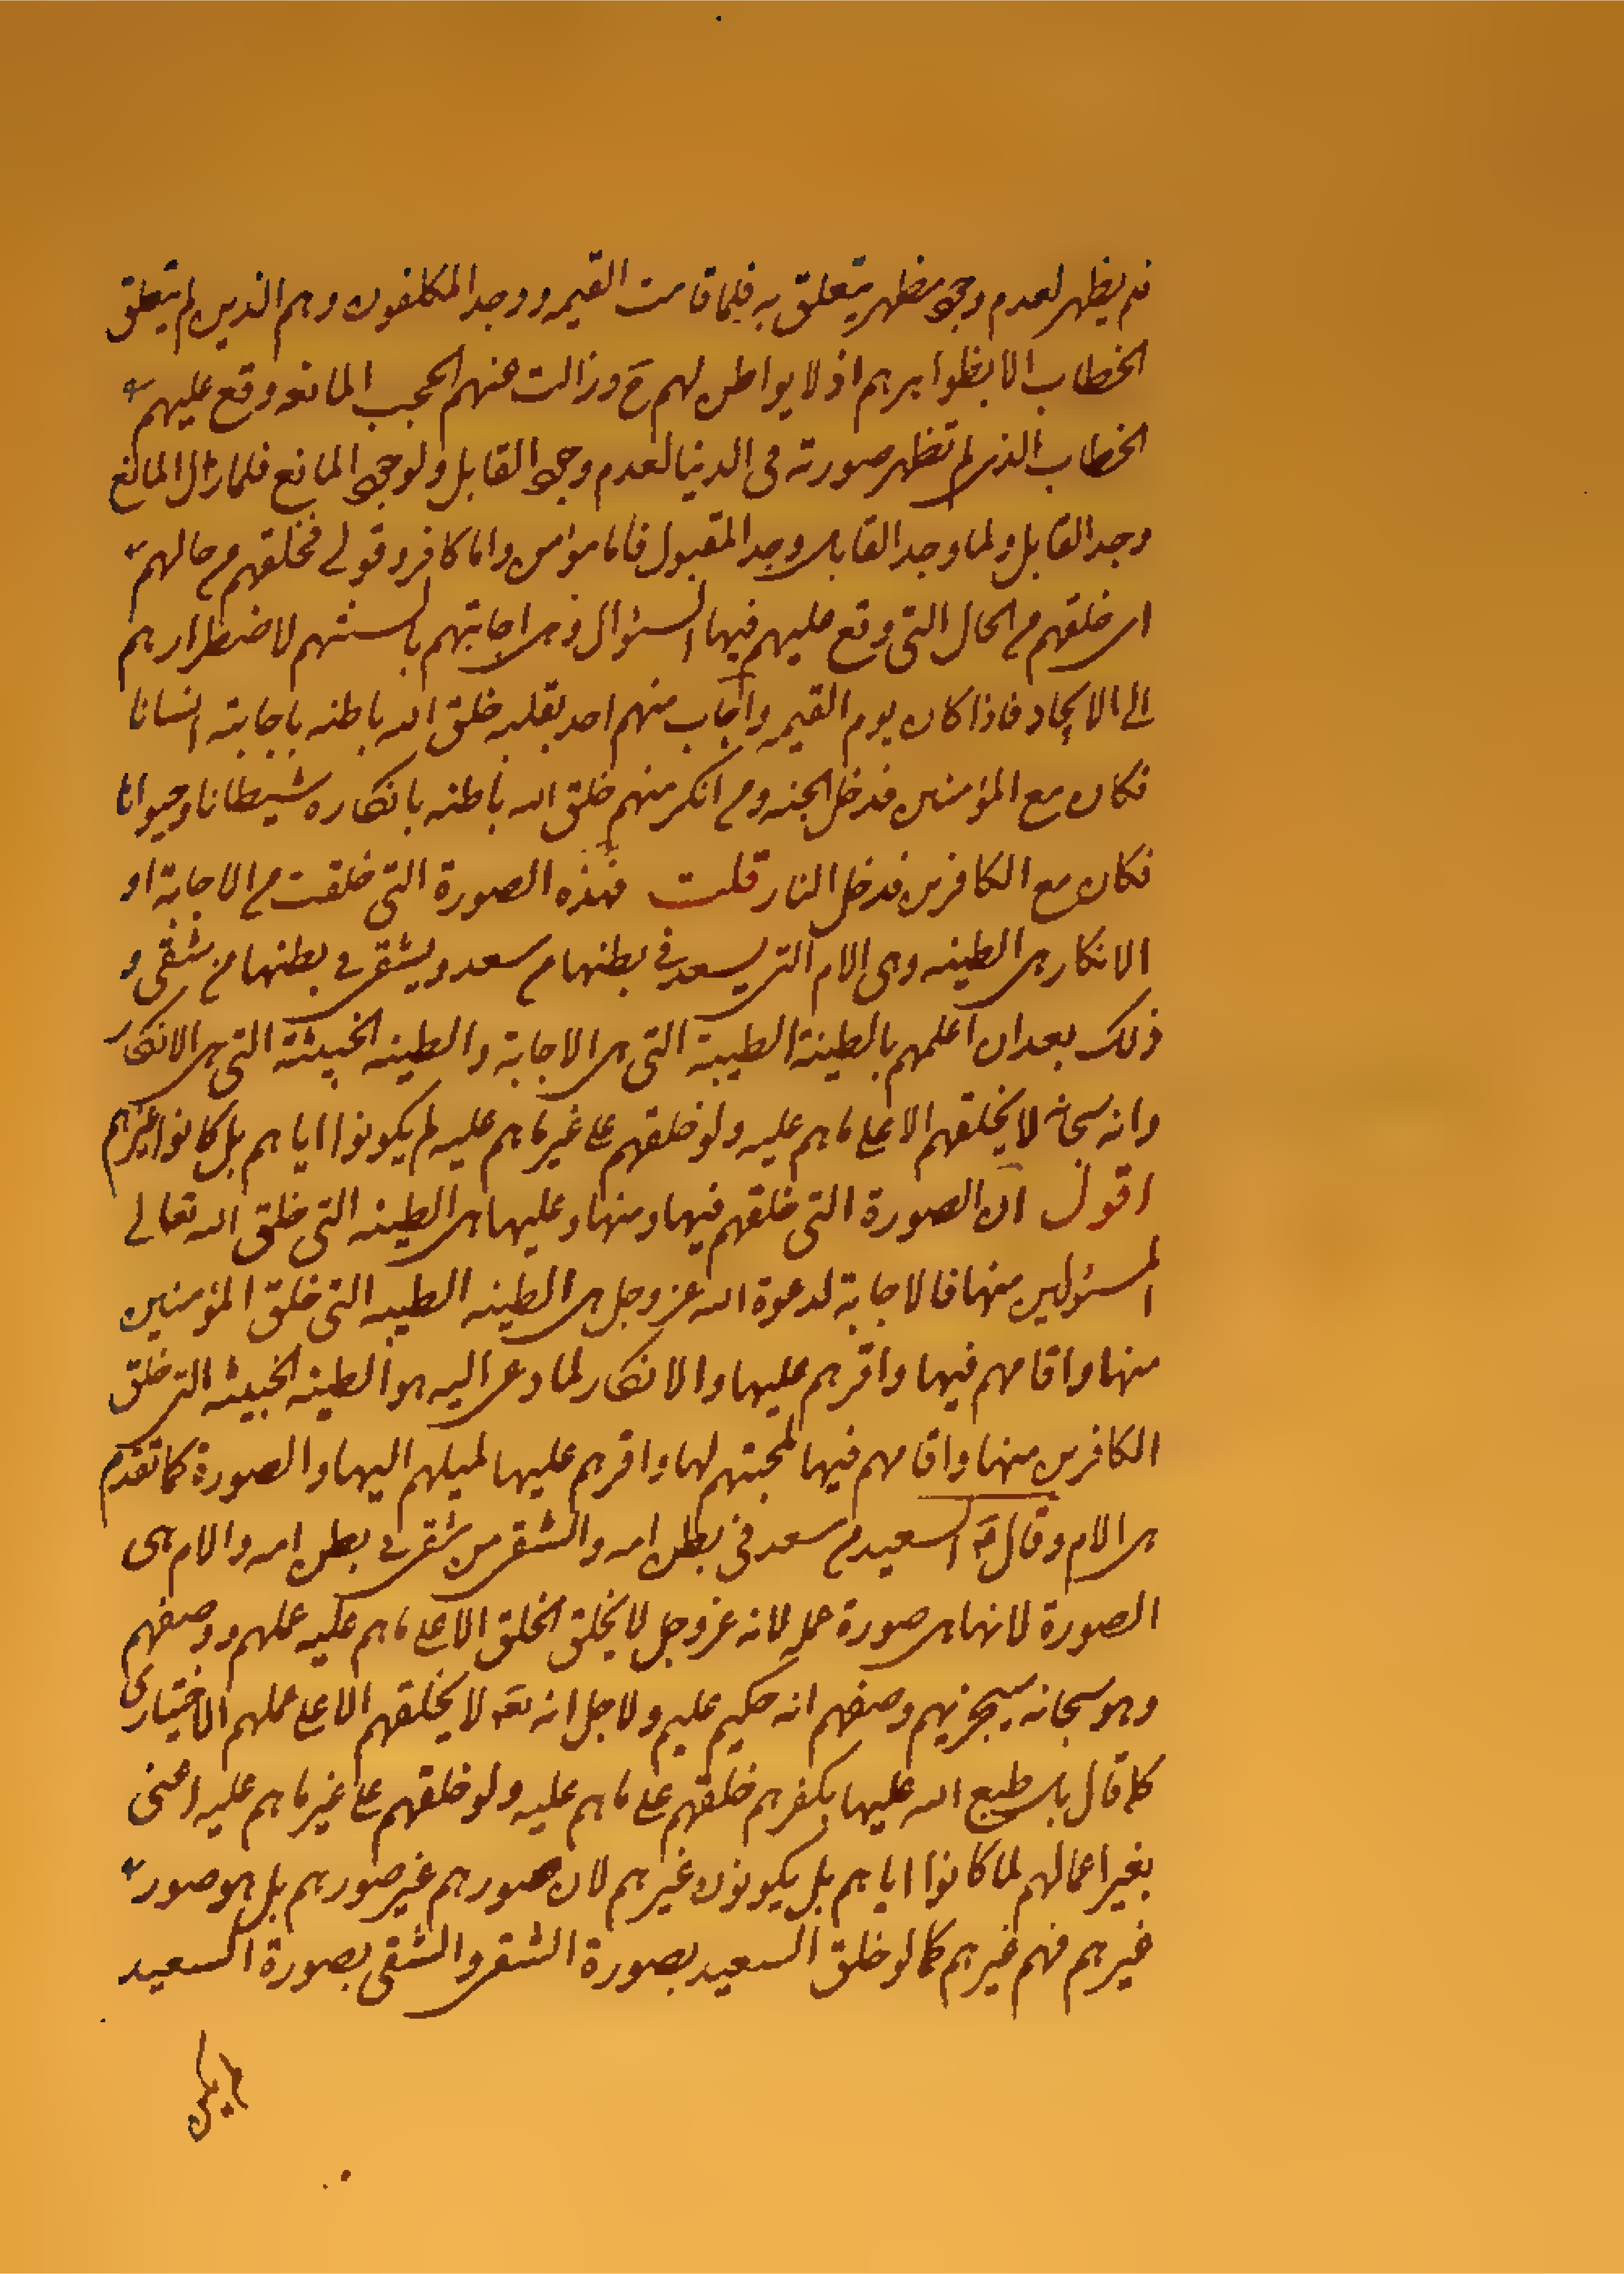 فلم يظهر لعدم وجود مظهر يتعلق به فلما قامت القيمه ووجد المكلفون وهم الذين لم يتعلق
الخطاب الا بظواهرهم اذ لا بواطن لهم ح وزالت عنهم الحجب المانعه وقع عليهم
الخطاب الذي لم تظهر صورته في الدنيا لعدم وجود القابل ولوجود المانع فلما زال المانع
وجد القابل ولما وجد القابل وجد المقبول فاما مؤمن واما كافر وقولي فخلقهم من حالهم
اي خلقهم من الحال التي وقع عليهم فيها السئوال وهي اجابتهم بالسنتهم لاضطرارهم
الى الايجاد فاذا كان يوم القيمه واجاب منهم احد بقلبه خلق الله باطنه باجابته انسانا
فكان مع المؤمنين فدخل الجنه ومن انكر منهم خلق الله باطنه بانكاره شيطانا وحيوانا
فكان مع الكافرين فدخل النار قلت فهذه الصورة التي خلقت من الاجابة او
الانكار هي الطينه وهي الام التي يسعد في بطنها من سعد ويشقى في بطنها من شقي و
ذلك بعد ان اعلمهم بالطينة الطيبة التي هي الاجابة والطينه الخبيثة التي هي الانكار
وانه سبحانه لا يخلقهم الا على ما هم عليه ولو خلقهم على غير ما هم عليه لم يكونوا اياهم بل كانوا غيرهم
اقول ان الصورة التي خلقهم فيها ومنها وعليها هي الطينه التي خلق الله تعالى
المسئولين منها فالاجابة لدعوة الله عز وجل هي الطينه الطيبه التي خلق المؤمنين
منها واقامهم فيها واقرهم عليها والانكار لما دعي اليه هو الطينه الخبيثه التي خلق
الكافرين منها واقامهم فيها لمحبتهم لها واقرهم عليها لميلهم اليها والصورة كما تقدم
هي الام وقال السعيد من سعد في بطن امه والشقي من شقي في بطن امه والام هي
الصورة لانها هي صورة عمل لانه عز وجل لا يخلق الخلق الا على ما هم عليه عملهم ووصفهم
وهو سبحانه سيجزيهم وصفهم انه حكيم عليم ولاجل انه تعه لا يخلقهم الا على عملهم الاختياري
كما قال بل طبع الله عليها بكفرهم خلقهم على ما هم عليه ولو خلقهم على غير ما هم عليه اعني
بغير اعمالهم لما كانوا اياهم بل يكونون غيرهم لان صورهم غير صورهم بل هو صور
غيرهم فهم غيرهم كما لو خلق السعيد بصورة الشقي والشقي بصورة السعيد